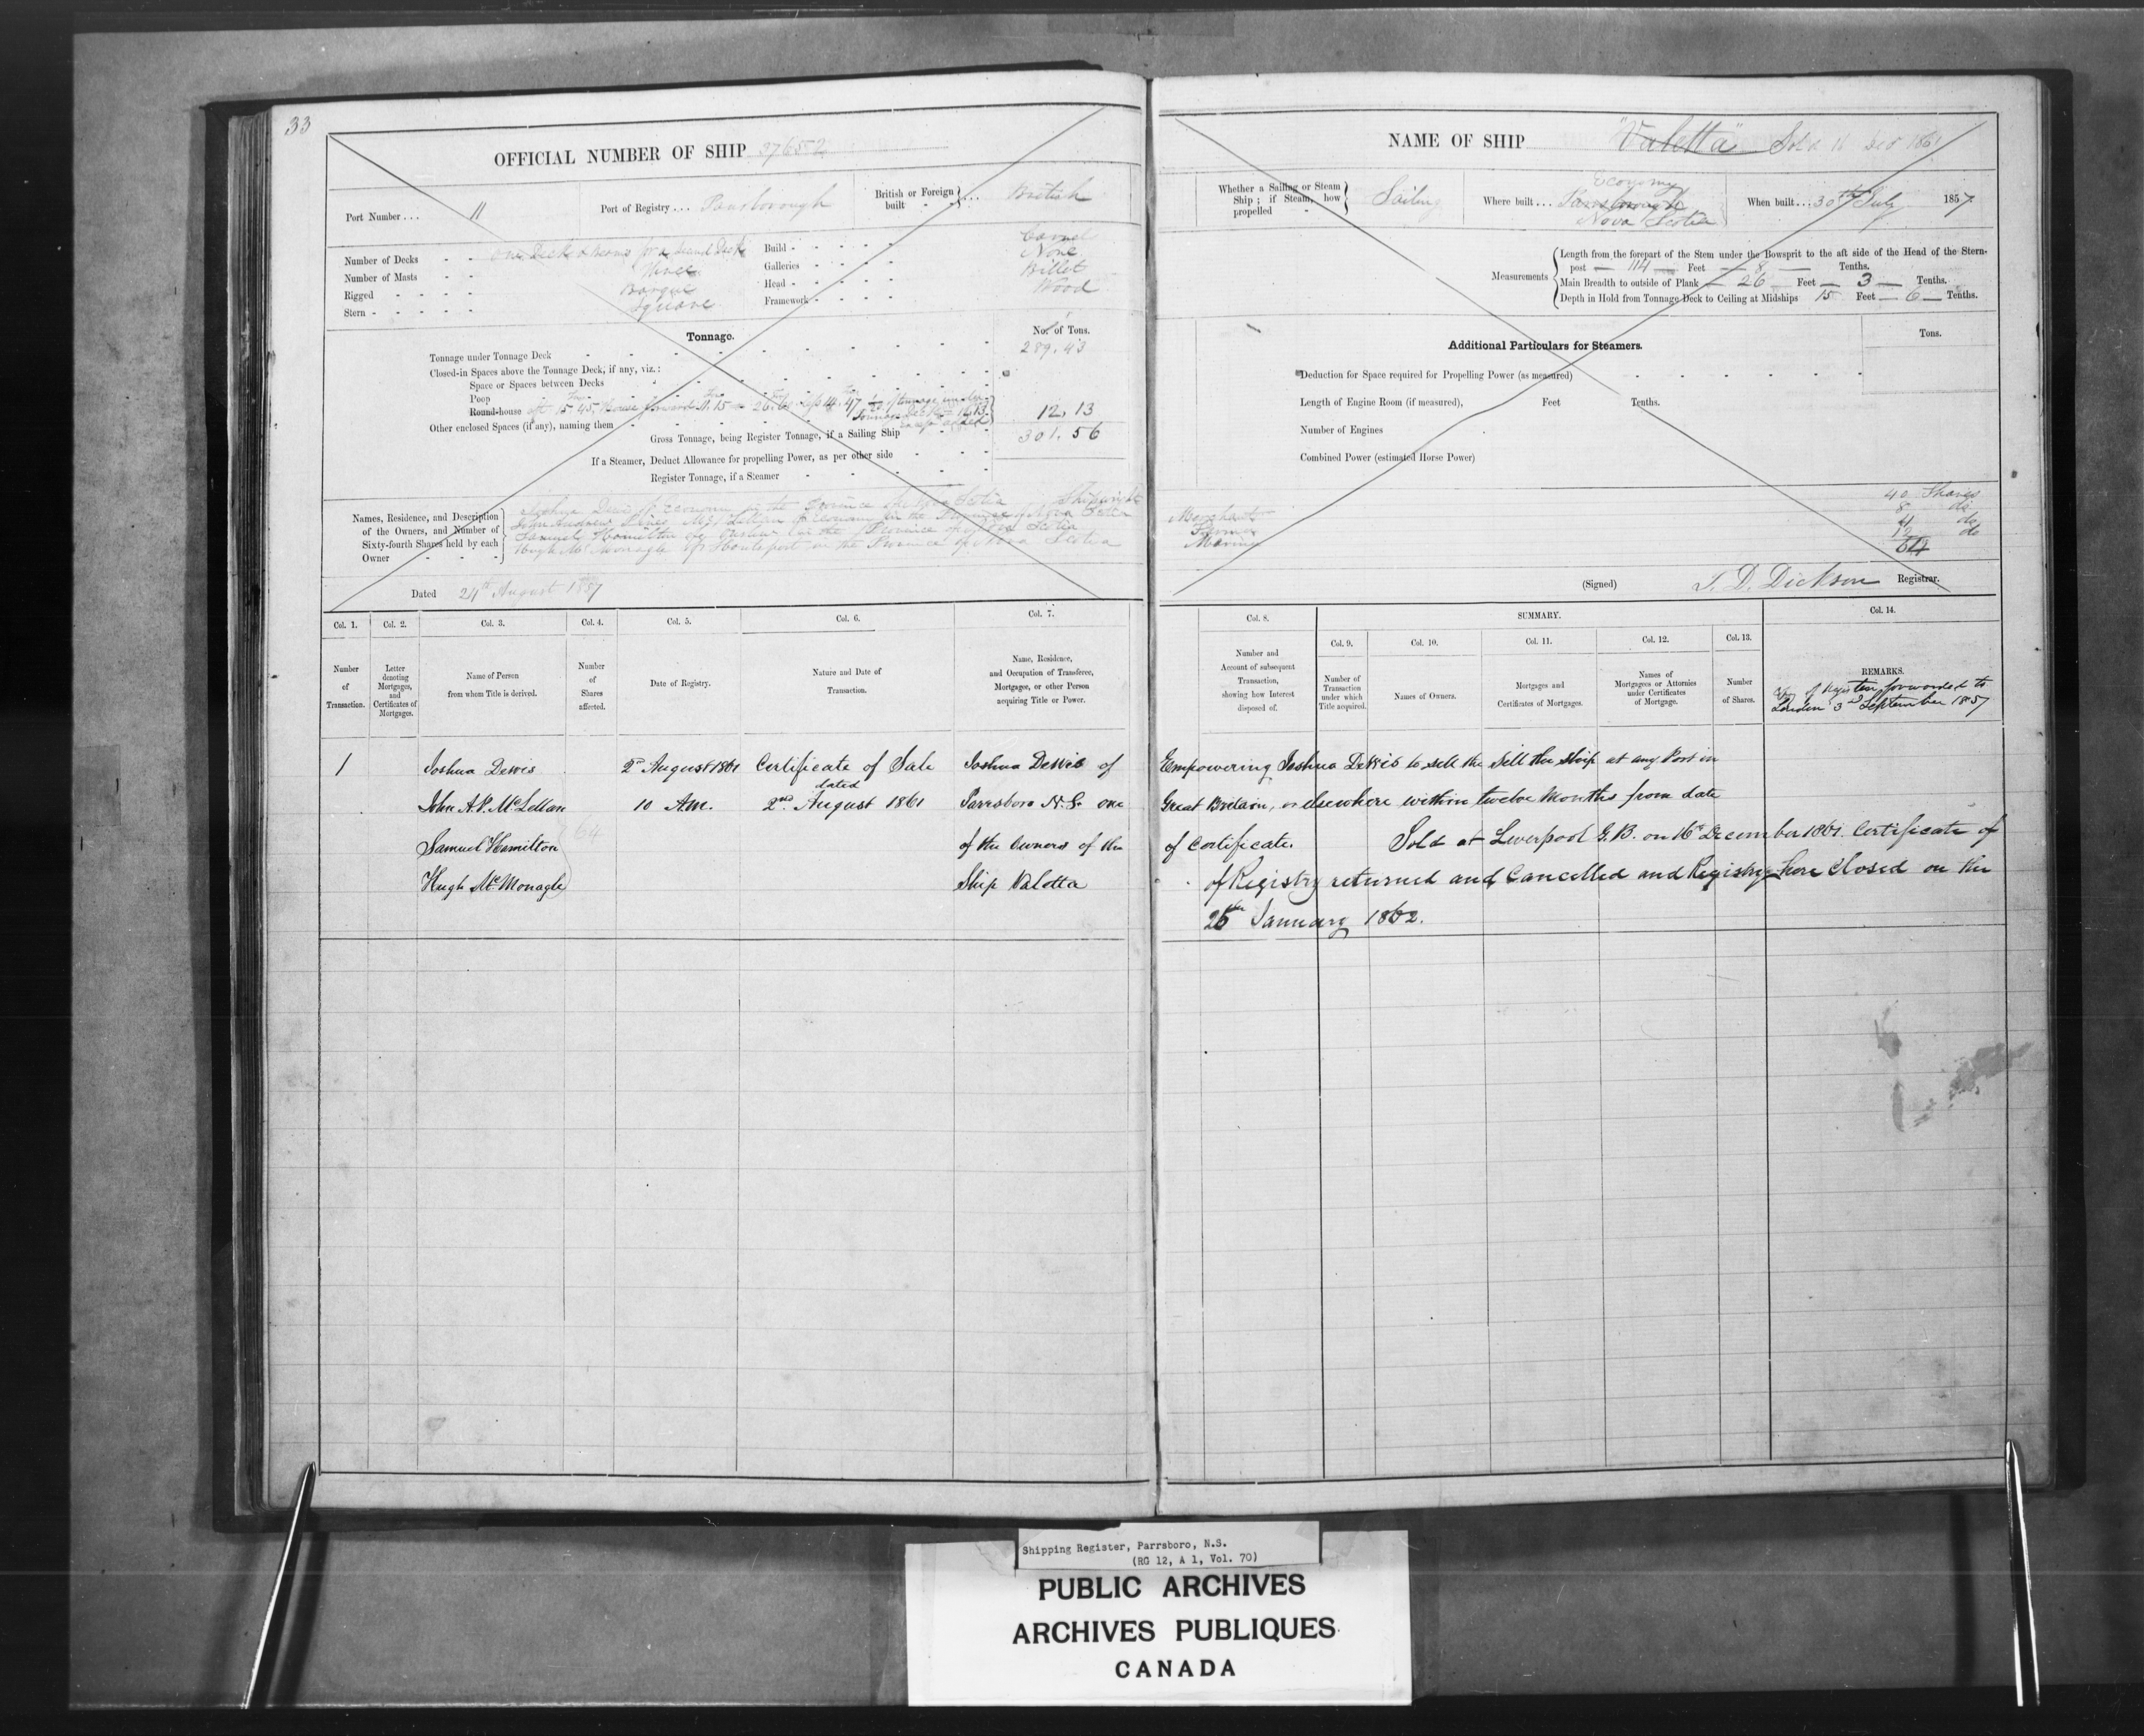 33
OFFICIAL NUMBER OF SHIP 37652
Port Number . . . 11
Port of Registry . . . Parrsborough
British or Foreign built } . . . British
Number of Decks - - One Deck & Beams for a second Deck
Number of Masts - - Three
Rigged - - - - Barque
Stern - - - - Square
Build - - - - - Carvel
Galleries - - - - None
Head - - - - - Billet
Framework - - - - Wood
Tonnage.
No. of Tons.
Tonnage under Tonnage Deck 289.43
Closed-in Spaces above the Tonnage Deck, if any, viz.:
Space or Spaces between Decks
Poop
Round-house aft 15.45, House forward 11.15 = 26.60 less 14.47 1/20 of tonnage under
Tonnage Deck = 12.13
excess added
12.13
Other enclosed Spaces (if any), naming them
Gross Tonnage, being Register Tonnage, if a Sailing Ship 301.56
If a Steamer, Deduct Allowance for propelling Power, as per other side
Register Tonnage, if a Steamer
Names, Residence, and Description of the Owners, and Number of Sixty-fourth Shares held by each Owner - - -
Joshua Dewis of Economy in the Province of Nova Scotia Shipwright
John Andrew McLellan of Economy in the Province of Nova Scotia
Samuel Hamilton of Onslow in the Province of Nova Scotia
Hugh McMonagle of Hantsport in the Province of Nova Scotia
Dated 24th August 1857
NAME OF SHIP "Valetta" Sold 16 Dec 1861
Whether a Sailing or Steam Ship; if Steam, how propelled - } Sailing
Where built . . . Economy
Parrsborough
Nova Scotia
When built . . . 30th July 1857.
Measurements
Length from the forepart of the Stem under the Bowsprit to the aft side of the Head of the Stern-
post — 114 — Feet — 8 — Tenths.
Main Breadth to outside of Plank — 26 — Feet — 3 — Tenths.
Depth in Hold from Tonnage Deck to Ceiling at Midships 15 Feet — 6 — Tenths.
Additional Particulars for Steamers.
Tons.
Deduction for Space required for Propelling Power (as measured)
Length of Engine Room (if measured), Feet Tenths.
Number of Engines
Combined Power (estimated Horse Power)
40 Shares
Merchant 8 do
Farmer 4 do
Mariner 12 do
64
(Signed) T. D. Dickson Registrar.
Col. 1.
Col. 2.
Col. 3.
Col. 4.
Col. 5.
Col. 6.
Col. 7.
Number of Transaction.
Letter denoting Mortgages, and Certificates of Mortgages.
Name of Person from whom Title is derived.
Number of Shares affected.
Date of Registry.
Nature and Date of Transaction.
Name, Residence, and Occupation of Transferee, Mortgagee, or other Person acquiring Title or Power.
Col. 8.
SUMMARY.
Col. 9.
Col. 10.
Col. 11.
Col. 12.
Col. 13.
Col. 14.
Number and Account of subsequent Transaction, showing how Interest disposed of.
Number of Transaction under which Title acquired.
Names of Owners.
Mortgages and Certificates of Mortgages.
Names of Mortgagees or Attornies under Certificates of Mortgage.
Number of Shares.
REMARKS.
Copy of Register forwarded to
London 3d September 1857
1 Joshua Dewis 2nd August 1861 Certificate of Sale Joshua Dewis of
John A. P. McLellan 10 A.M. dated 2nd August 1861 Parrsboro N.S. one
Samuel Hamilton 64 of the Owners of the
Hugh McMonagle Ship Valetta
Empowering Joshua Dewis to sell the Sell the Ship at any Port in
Great Britain, or elsewhere within twelve Months from date
of Certificate. Sold at Liverpool G.B. on 16th December 1861. Certificate of
of Registry returned and Cancelled and Registry here Closed on the
25th January 1862.
Shipping Register, Parrsboro, N.S.
(RG 12, A 1, Vol. 70)
PUBLIC ARCHIVES
ARCHIVES PUBLIQUES
CANADA